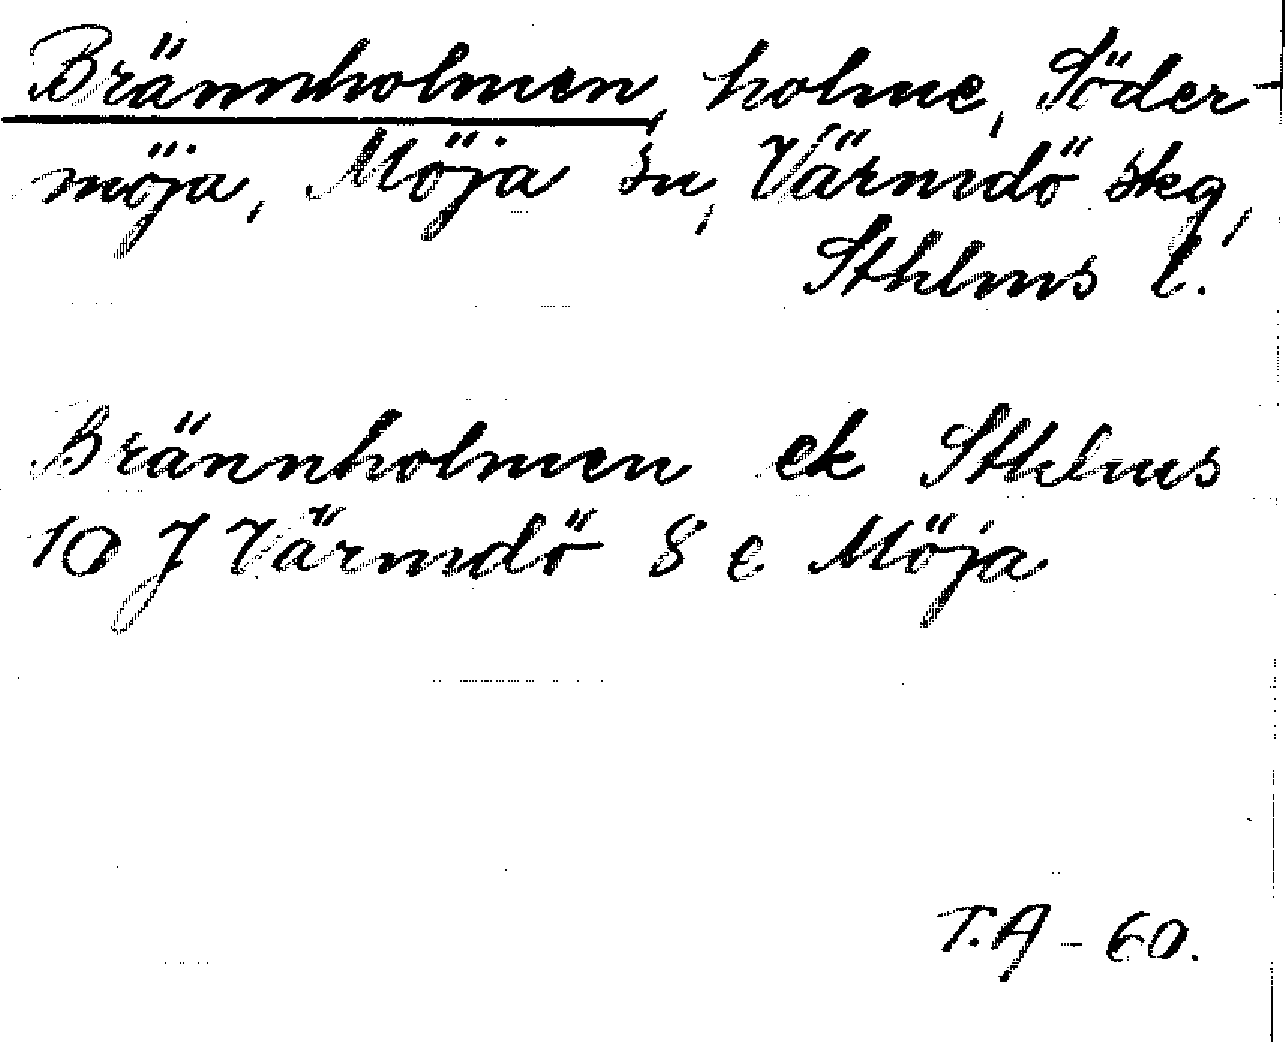 Brännholmen, holme, Söder-
möja, Möja sn, Värmdö skg,
Sthlms l.
Brännholmen ek Sthlms
10 J Värmdö 8 e Möja
T.A - 60.